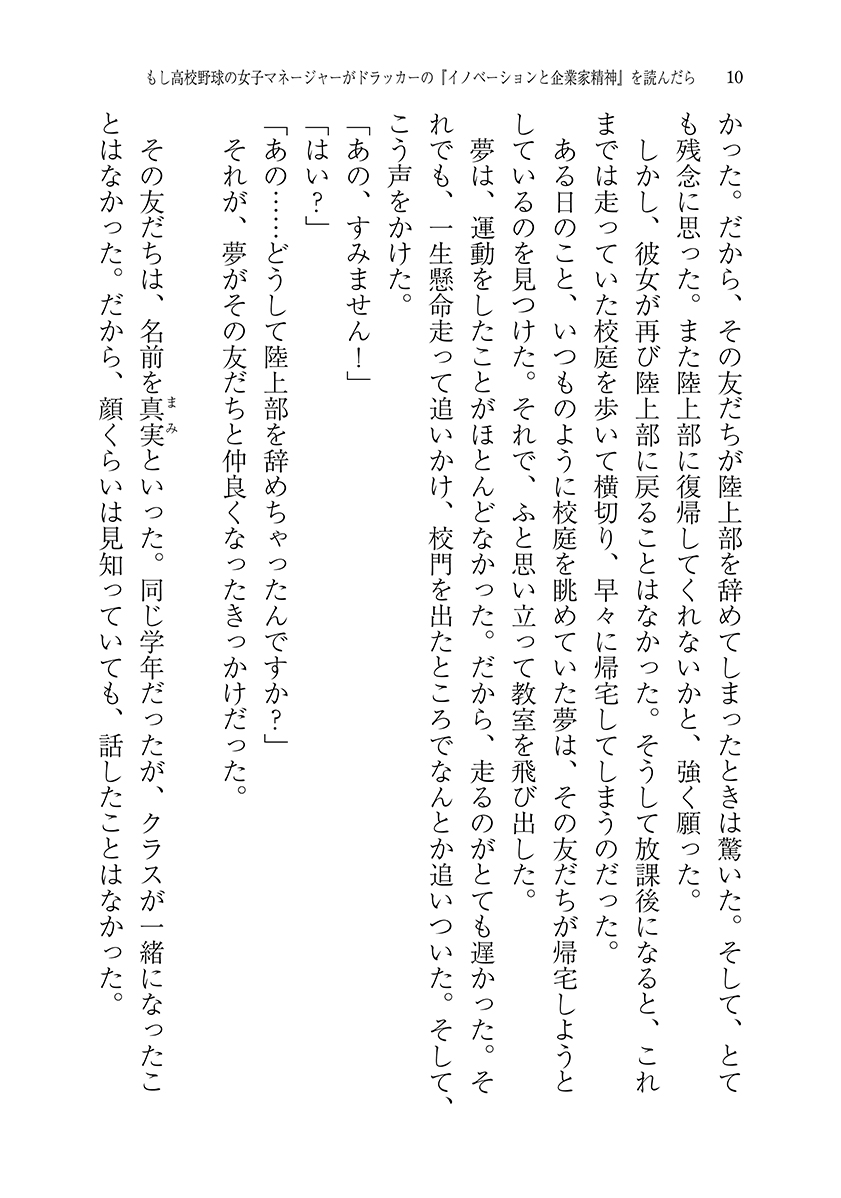 もし高校野球の女子マネージャーがドラッカーの『イノベーションと企業家精神』を読んだら　10
かった。だから、その友だちが陸上部を辞めてしまったときは驚いた。そして、とて
も残念に思った。また陸上部に復帰してくれないかと、強く願った。
　しかし、彼女が再び陸上部に戻ることはなかった。そうして放課後になると、これ
までは走っていた校庭を歩いて横切り、早々に帰宅してしまうのだった。
　ある日のこと、いつものように校庭を眺めていた夢は、その友だちが帰宅しようと
しているのを見つけた。それで、ふと思い立って教室を飛び出した。
　夢は、運動をしたことがほとんどなかった。だから、走るのがとても遅かった。そ
れでも、一生懸命走って追いかけ、校門を出たところでなんとか追いついた。そして、
こう声をかけた。
「あの、すみません！」
「はい？」
「あの……どうして陸上部を辞めちゃったんですか？」
　それが、夢がその友だちと仲良くなったきっかけだった。
　その友だちは、名前を真実（まみ）といった。同じ学年だったが、クラスが一緒になったこ
とはなかった。だから、顔くらいは見知っていても、話したことはなかった。